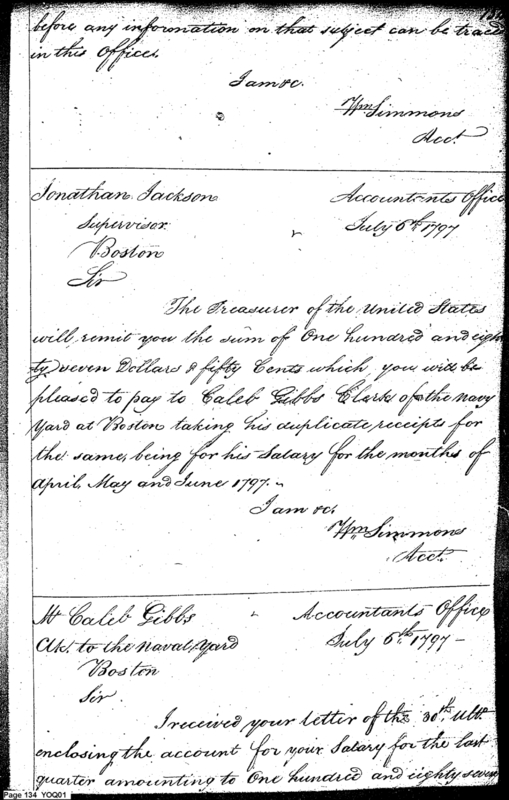 before any information on that subject can be traced
in this Office.
I am &c.
Wm Simmons
Acct.
Jonathan Jackson
Accountants Office
Supervisor
July 6th 1797
Boston
Sir
The Treasurer of the United States
will remit you the sum of One hundred and eigh
ty seven Dollars & fifty Cents which you will be
pleased to pay to Caleb Gibbs Clerk of the Navy
Yard at Boston taking his duplicate receipts for
the same, being for his Salary for the months of
April, May and June 1797.
I am &c.
Wm Simmons
Acct.
Mr Caleb Gibbs
Accountants Office
Clk. to the Naval Yard
July 6th. 1797
Boston
Sir
I received your letter of the 30th. Ulto.
enclosing the account for your Salary for the last
quarter amounting to One hundred and eighty seven
Page 134 YOQ01